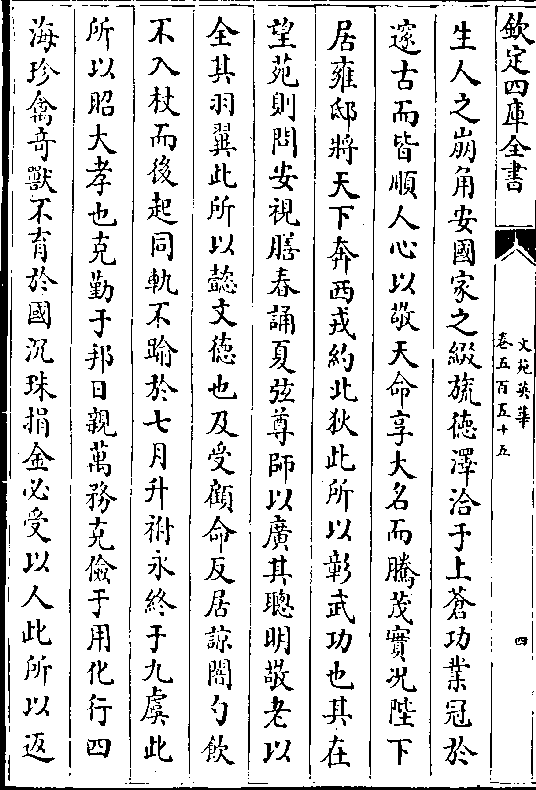 欽定四庫全書
文苑英華
卷五百五十五
四
生人之崩角安國家之綴旒德澤洽于上蒼功業冠於
邃古而皆順人心以敬天命享大名而騰茂實况陛下
居雍邸將天下奔西戎約北狄此所以彰武功也其在
望苑則問安視膳春誦夏弦尊師以廣其聰明敬老以
全其羽翼此所以懿文德也及受顧命反居諒闇勺飲
不入杖而後起同軌不踰於七月升祔永終于九虞此
所以昭大孝也克勤于邦日親萬務克儉于用化行四
海珍禽竒獸不育於國沉珠捐金必受以人此所以返